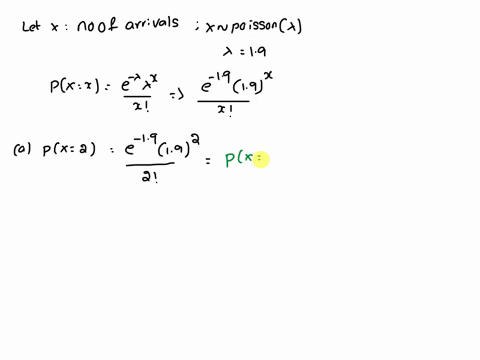 Let x : no of arrivals ; x~poisson(λ)
λ = 1.9
P(x=x) = e^-λ λ^x / x! => e^-1.9 (1.9)^x / x!
(a) P(x=2) = e^-1.9 (1.9)^2 / 2! = P(x=